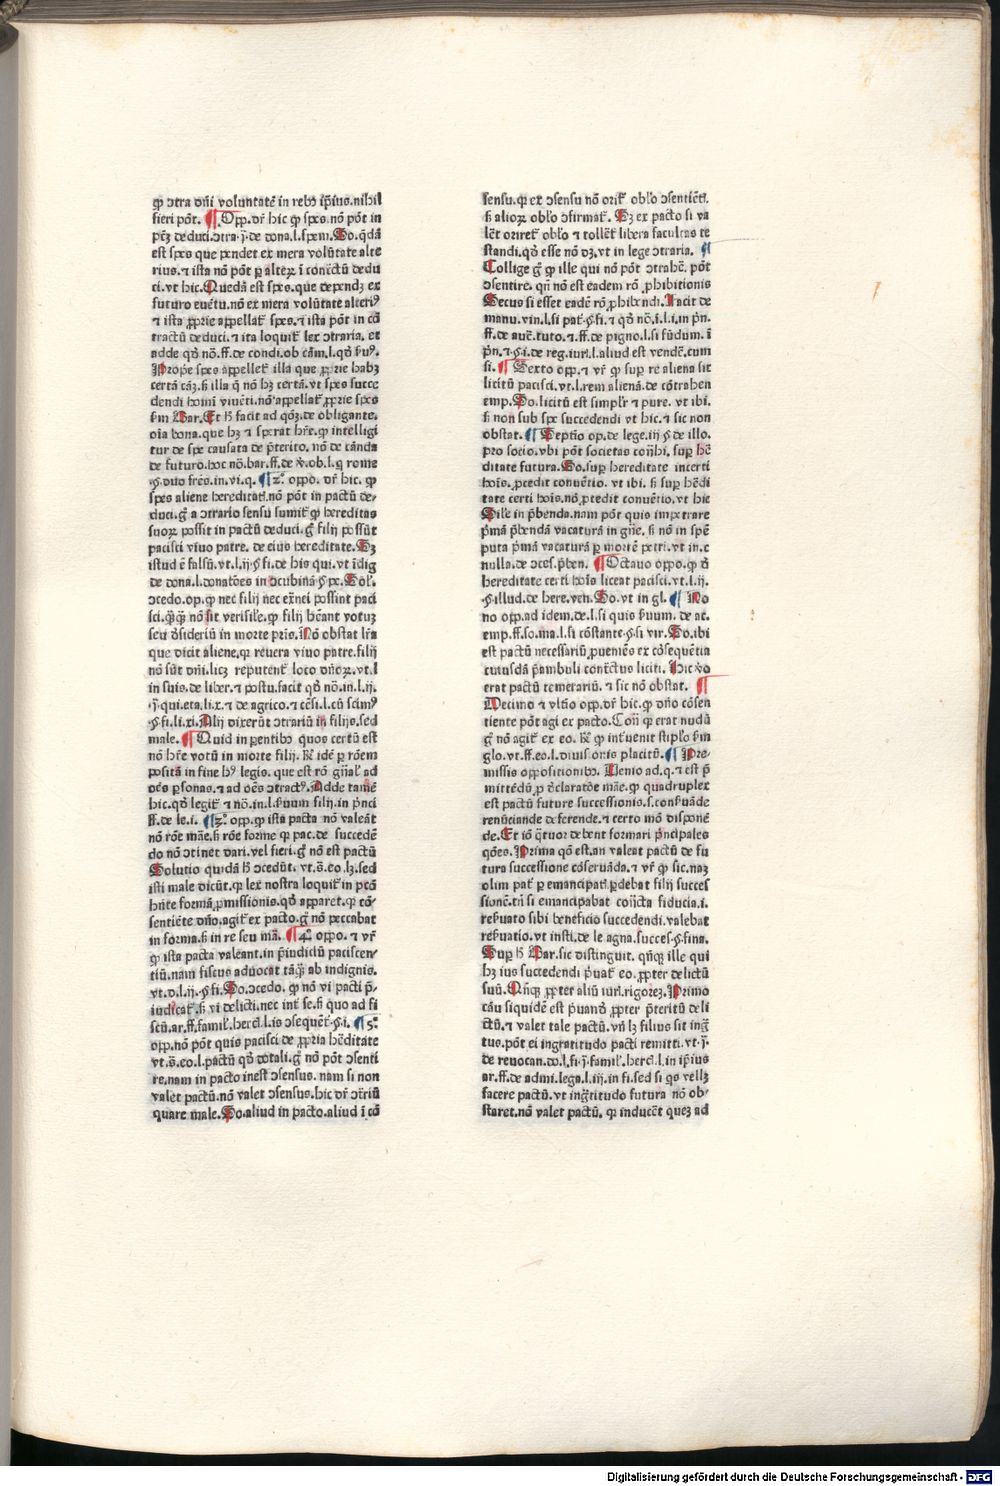 ꝙ ɔtra dñi voluntatē in rebꝰ ip̄ius.nihil
fieri pōt. ¶ Opp.dr̄ hic ꝙ spes.nō pōt in
est spes que pendet ex mera volūtate alte
rius.⁊ ista nō pōt ꝑ alterꝫ ī cōnctū dedu
ci.vt hic.Quedā est spes.que dependꝫ ex
futuro euētu.nō ex mera volūtate alteriꝰ
⁊ ista ꝓprie appellat᷑ spes.⁊ ista pōt in cō
tractū deduci.⁊ ita loquit᷑ lex ɔtraria. et
adde qđ nō.ff.de condi.ob cām.l.qđ
Prope spes appellet᷑ illa que ꝓprie habꝫ
certā cāꝫ.ß illa q̄ nō hꝫ certā.vt spes succe
dendi homī viuēti.nō appellat᷑ ꝓprie spes
Bar.Et ħ facit ad qōꝫ.de obligante.
oīa bona.que hꝫ ⁊ sperat hr̄e.ꝙ intelligi
tur de spe causata de p̄terito. nō de cānda
de futuro.hoc nō.bar.ff.de v̄.ob.l.q̄ rome
.§.duo fr̄es.in.vi.q. ¶ 2ᵒ oppo. dr̄ hic. ꝙ
spes aliene hereditatꝭ.nō pōt in pactū de⸗
duci.g̊ a ɔtrario sensu sumit᷑ ꝙ hereditas
suorꝫ possit in pactū deduci.g̊ filij possūt
pacisci viuo patre. de eius hereditate.Sꝫ
istud ē falsū.vt.l.ij.§.fi.de his qui.vt īdig
de dona.l.donatōes in ɔcubinā.§.pe.Sol᷑.
ɔcedo.op.ꝙ nec filij nec ext̄nei possint paci
sci.q̄ꝙ̄ nō sit verisil᷑e.ꝙ filij hēant votuꝫ
seu desideriū in morte pr̄is.Nō obstat lr̄a
que dicit aliene.ꝙ reuera viuo patre.filij
nō sūt dñi.licꝫ reputent᷑ loco dñorꝫ.vt.l
in suis.de liber.⁊ postu.facit qđ nō.in.l.ij.
qui.eta.li.x.⁊ de agrico.⁊ cēsi.l.cū scimꝰ
§.fi.li.xi.Alij dixerūt ɔtrariū in filijs.sed
male. ¶ Quid in ꝑentibꝰ quos certū est
nō hr̄e votū in morte filij. R̄ idē ꝑ rōem
positā in fine hꝰ legis. que est rō gn̄alꝭ ad
oēs ꝑsonas.⁊ ad oēs ɔtractꝰ.Adde tamē
hic.qđ legit᷑ ⁊ nō.in.l. filij.in pn̄ci
ff.de le.i. ¶ 3ᵒ opp.ꝙ ista pacta nō valeāt
nō rōe māe.ß rōe forme ꝙ pac.de succedē
do nō ɔtinet dari.vel fieri.g̊ nō est pactū
Solutio quidā ħ ɔcedūt. vt.s̄.eo.lꝫ.sed
isti male dicūt.ꝙ lex nostra loquit᷑ in pctō
hn̄te formā ꝓmissionis.qđ apparet.ꝙ cō⸗
sentiēte dño.agit᷑ ex pacto.g̊ nō peccabat
in forma.ß in re seu mā. ¶ 4ᵒ oppo.⁊ vr̄
ꝙ ista pacta valeant.in p̄iudiciū paciscen⸗
tiū.nam fiscus aduocat tāꝙ̄ ab indignis.
vt.d.l.ij.§.fi.So.ɔcedo. ꝙ nō vi pacti p̄⸗
iudicat᷑.ß vi delicti.nec int̄ se.ß quo ad fi
scū.ar.ff.famil᷑.herc̄.l.is ɔsequet᷑.§.i. ¶ 5ᵒ
opp.nō pōt quis pacisci de ꝓpria hēditate
vt.s̄.eo.l.pactū qđ dotali.g̊ nō pōt ɔsenti
re.nam in pacto inest ɔsensus. nam si non
valet pactū.nō valet ɔsensus.hic dr̄ ɔtr̄iū
quare male.So.aliud in pacto.aliud ī cō
sensu.ꝙ ex ɔsensu nō orit᷑ obl᷑o ɔsentiētꝭ.
ß aliorꝫ obl᷑o ɔfirmat᷑. Sꝫ ex pacto si va
lēt oriret᷑ obl᷑o ⁊ tollēt libera facultas te
standi.qđ esse nō dꝫ.vt in lege ɔtraria. ¶
Collige g̊ ꝙ ille qui nō pōt ɔtrahē. pōt
ɔsentire. qn̄ nō est eadem rō ꝓhibitionis
Secus si esset eadē rō ꝓhibendi.Facit de
manu.vin.l.si pat᷑.§.fi.⁊ qđ nō.i.l.i.in pn̄.
ff.de auc̄.tuto.⁊.ff.de pigno.l.si fūdum.ī
pn̄.⁊.§.i.de reg.iur̄.l.aliud est vendē.cum
si. ¶ Sexto opp.⁊ vr̄ ꝙ suꝑ re aliena sit
licitū pacisci.vt.l.rem alienā.de cōtrahen
emp.So.licitū est simpl᷑r ⁊ pure. vt ibi.
ß non sub spe succedendi vt hic.⁊ sic non
obstat. ¶ Septīo op.de lege.iij.§.de illo.
pro socio.vbi pōt societas con̄hi.suꝑ hē
ditate futura.So.suꝑ hereditate incerti
hoīs.ꝓcedit conuētio. vt ibi. ß suꝑ hēdi
tate certi hoīs.nō ꝓcedit conuētio.vt hic
Sil᷑e in p̄benda.nam pōt quis impetrare
p̄mā p̄bendā vacaturā in gn̄e. ß nō in spē
puta p̄mā vacaturā ꝑ mortē petri.vt in.c
nulla.de ɔces.p̄ben. ¶ Octauo oppo.ꝙ đ
hereditate certi hoīs liceat pacisci.vt.l.ij.
.§.illud.de here.ven.So.vt in gl. ¶ No
no opp.ad idem.de.l.si quis de ac.
emp.ff.so.ma.l.si cōstante.§.si vir.So.ibi
est pactū necessariū ꝓueniēs ex cōsequētia
cuiusdā p̄ambuli conc̄tus liciti. Hic v̊o
erat pactū temerariū.⁊ sic nō obstat. ¶
Decimo ⁊ vltīo opp.dr̄ hic.ꝙ dño cōsen
tiente pōt agi ex pacto. ꝙ erat nudū
g̊ nō agit᷑ ex eo. R̄ ꝙ int̄uenit stipl᷑o
glo.vt.ff.eo.l.diuisionis placitū. ¶ Pre⸗
missis oppositionibꝰ. Uenio ad.q.⁊ est p̄
mittēdū ꝓ declaratōe māe.ꝙ quadruplex
est pactū future successionis.s.conẜuāde
renūciande deferende.⁊ certo mō disponē
de.Et iō q̄tuor debent formari p̄ncipales
qōes.Prima qō est.an valeat pactū de fu
tura successione cōseruāda.⁊ vr̄ ꝙ sic.naꝫ
olim pat᷑ ꝑ emancipatꝭ.ꝑdebat filij succes
sionē.tn̄ si emancipabat con̄cta fiducia.i.
reẜuato sibi beneficio succedendi.valebat
reẜuatio.vt insti.de le.agna.succes.§.fina.
Suꝑ ħ Bar.sic distinguit. qn̄qꝫ ille qui
hꝫ ius succedendi p̄uat᷑ eo.ꝓpter delictū
suū.Qn̄qꝫ ꝓpter aliū iur̄.rigoreꝫ.Primo
cāu siquidē est p̄uandꝰ ꝓpter p̄teritū deli
ctū.⁊ valet tale pactū.vn̄ lꝫ filius sit ingr̄
tus.pōt ei ingratitudo pacti remitti.vt.
de reuocan.do.l.fi.⁊.famil᷑.herc̄.l.in ip̄ius
ar.ff.de admi.lega.l.iij.in fi.sed si qs vellꝫ
facere pactū.vt ingr̄titudo futura nō ob⸗
staret.nō valet pactū. ꝙ inducēt queꝫ ad
Digitalisierung gefördert durch die Deutsche Forschungsgemeinschaft - DFG